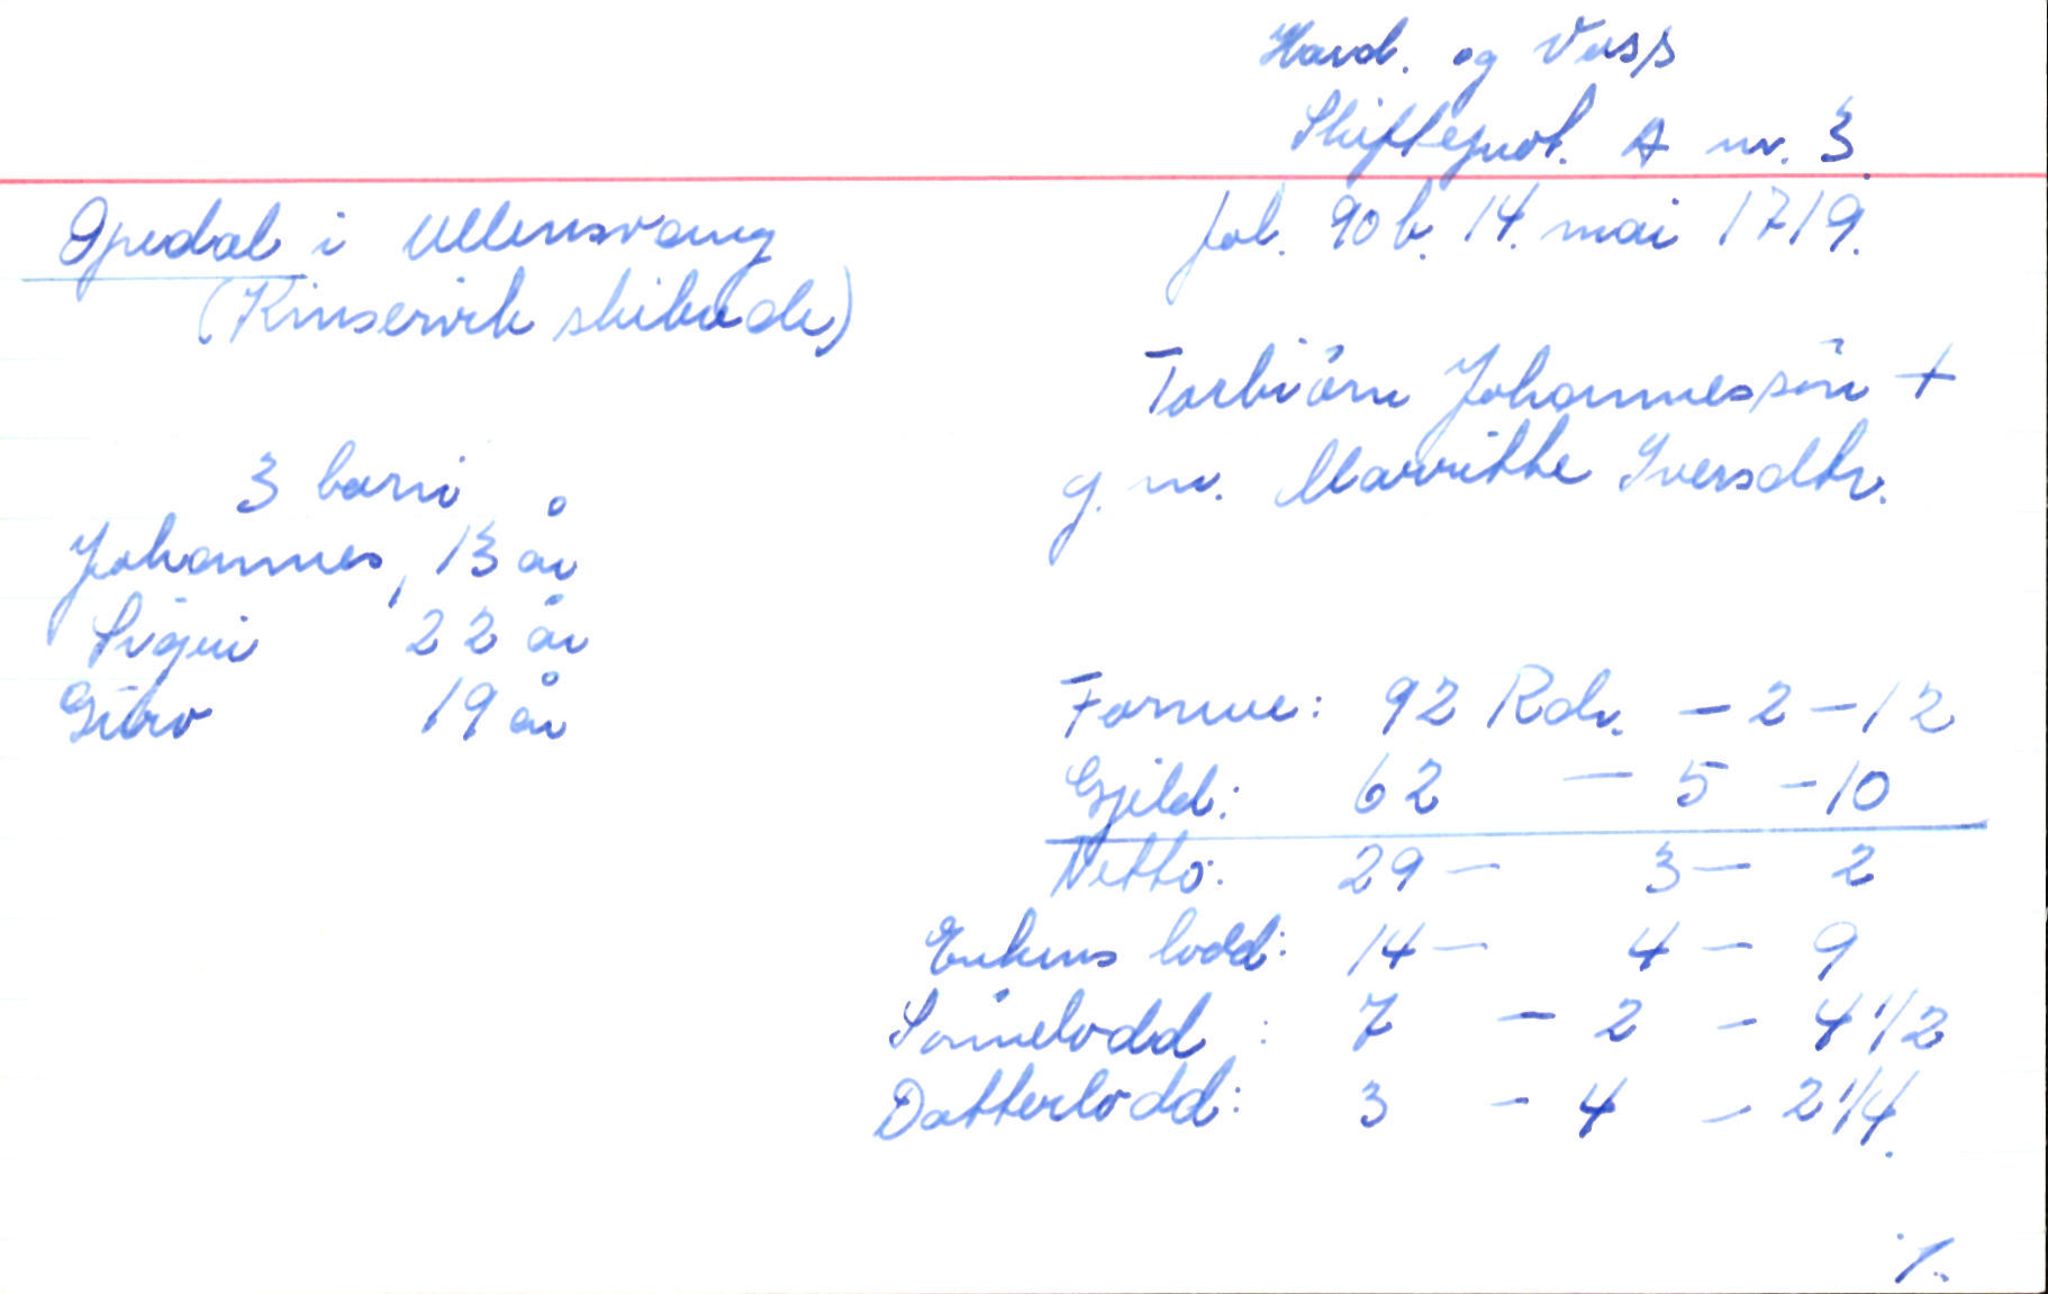 Hard. og Voss
Skifteprot. A nr. 3.
fol. 90 b. 14. mai 1719.
Opedal i Ullensvang
(Kinservik skibrede)
Torbiörn Johannessön +
g. m. Marritte Iversdtr.
3 barn
Johannes, 13 år
Sigri 22 år
Guro 19 år
Formue: 92 Rdr. - 2 - 12
Gjeld: 62 - 5 - 10
Netto: 29 - 3 - 2
Enkens lodd: 14 - 4 - 9
Sönnelodd : 7 - 2 - 4 1/2
Datterlodd: 3 - 4 - 2 1/4.
./.